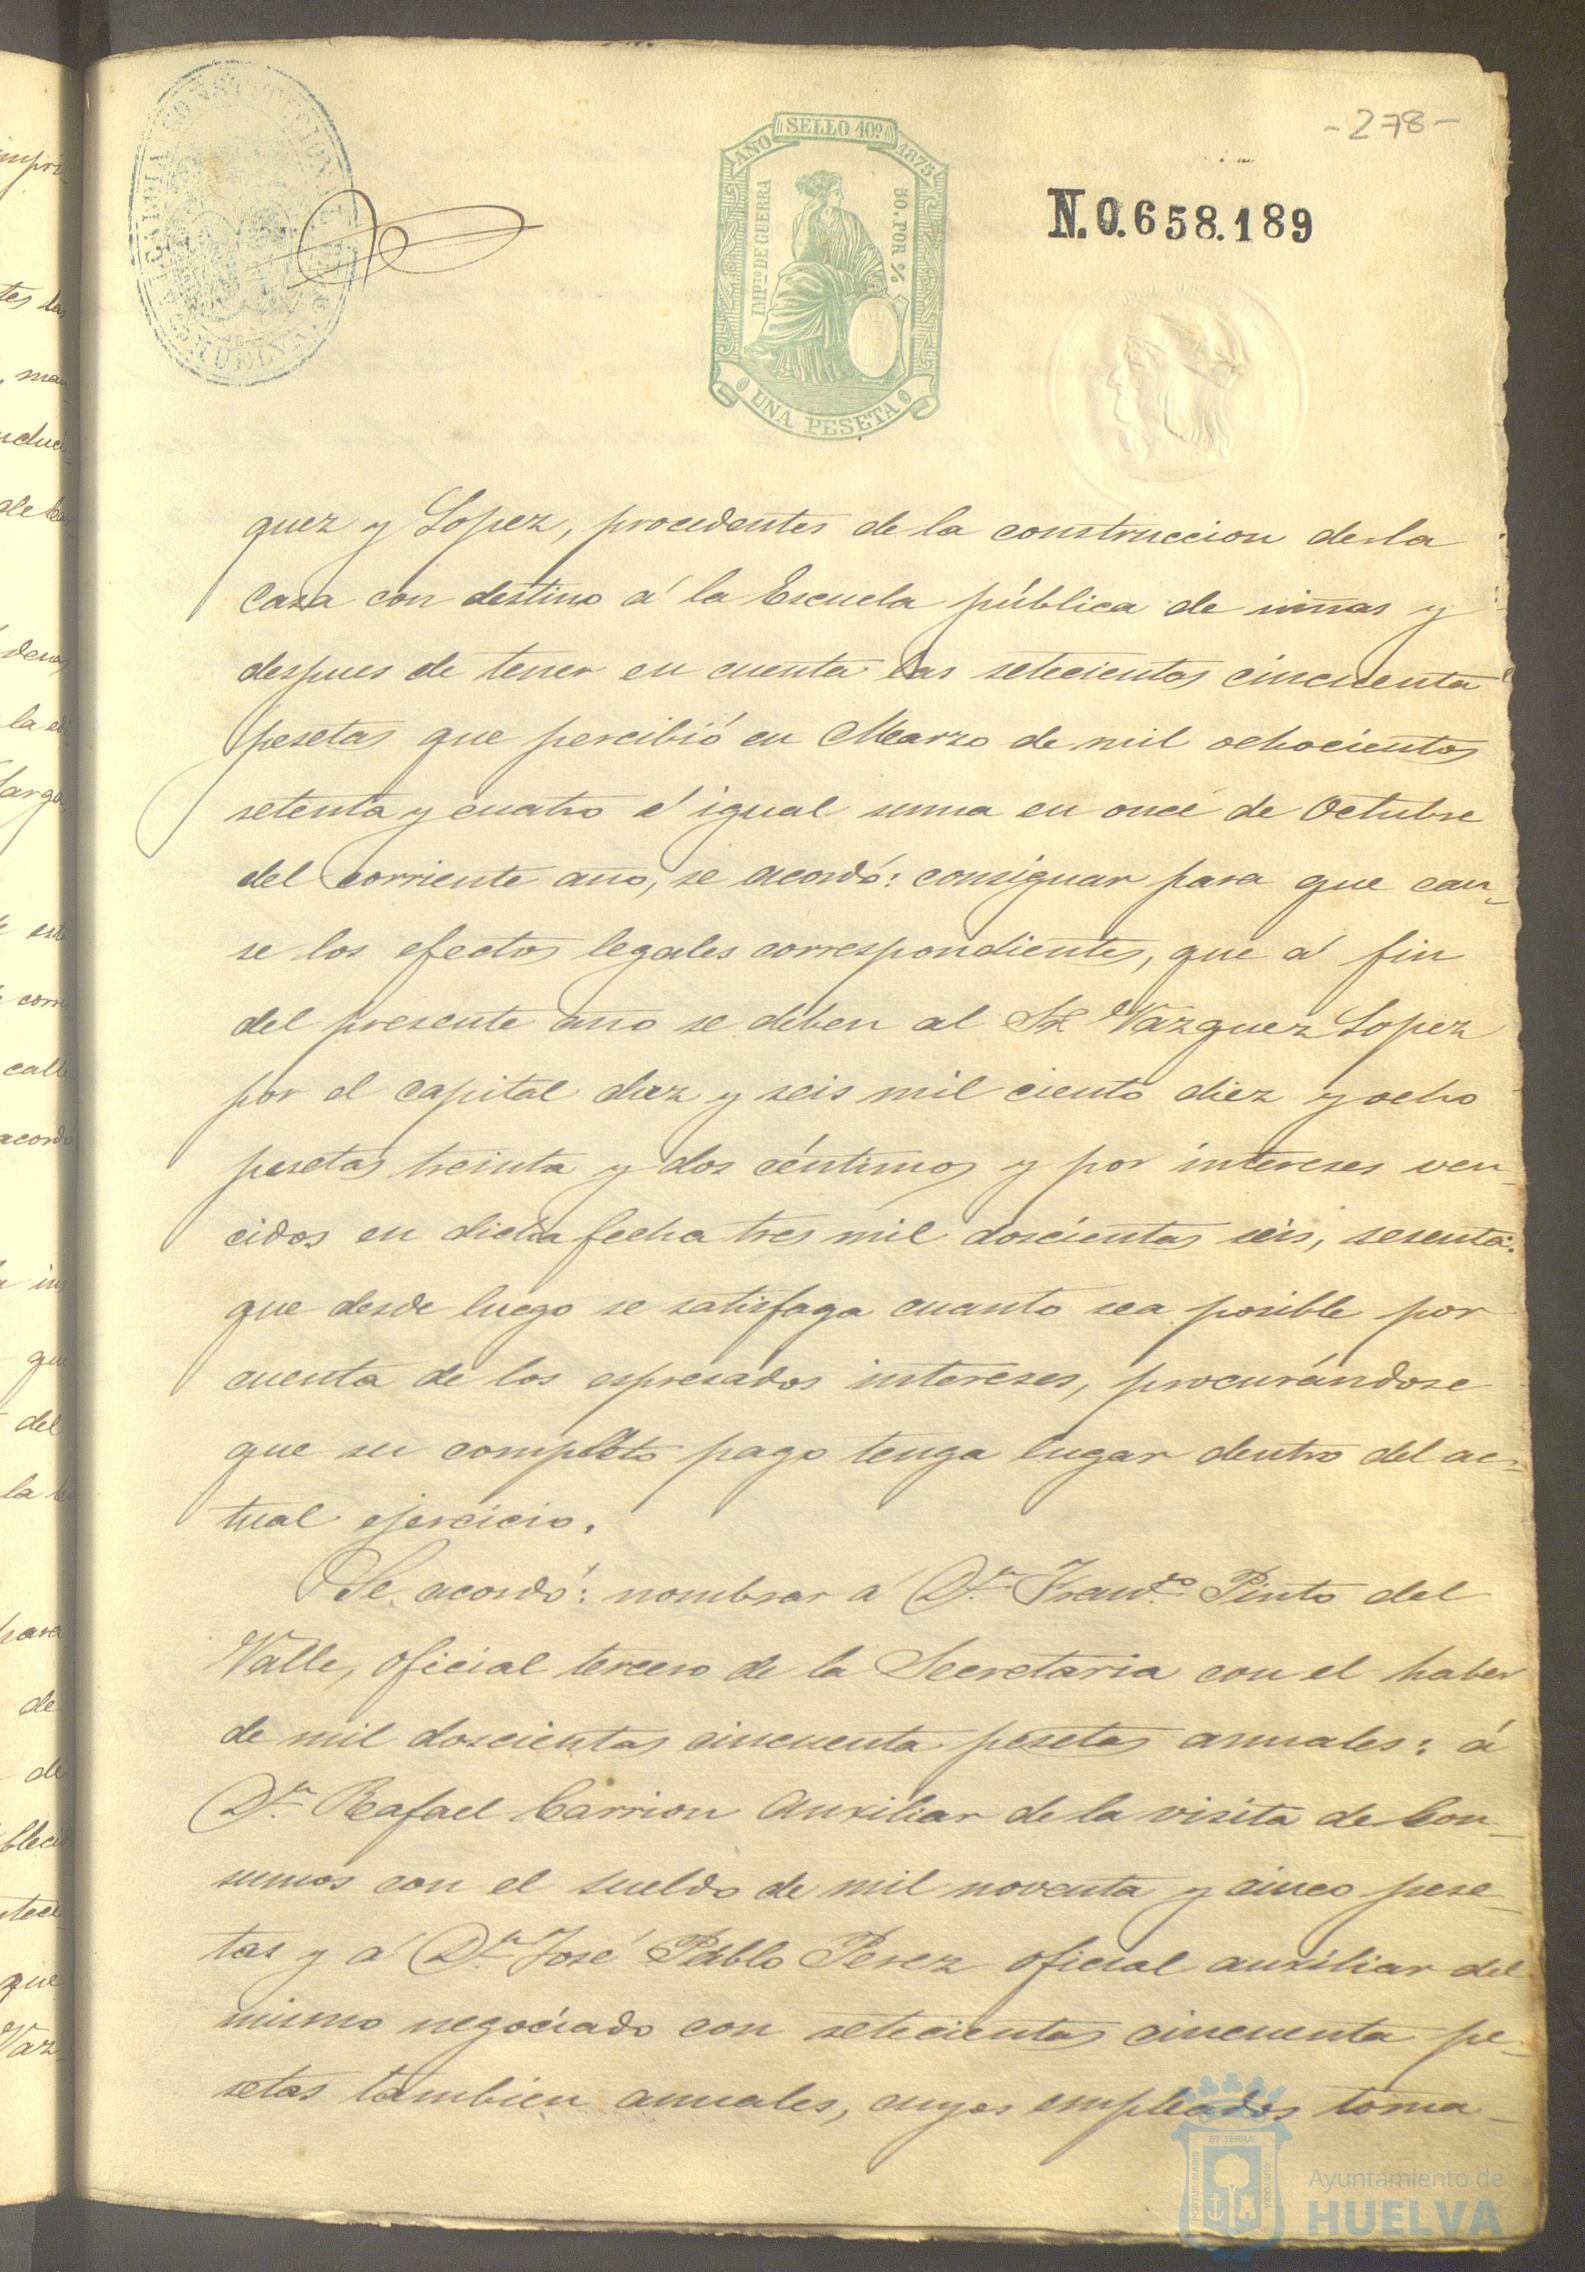 -278-
SELLO 10º
AÑO 1875
IMPTO DE GUERRA
50. POR %
UNA PESETA
N.0.658.189
ALCALDIA CONSTITUCIONAL
HUELVA
quez y Lopez, procedentes de la construccion de la
Casa con destino á la Escuela pública de niñas y
despues de tener en cuenta las setecientas cincuenta
pesetas que percibió en Marzo de mil ochocientos
setenta y cuatro é igual suma en once de Octubre
del corriente año, se acordó: consignar para que cau-
se los efectos legales correspondientes, que á fin
del presente año se deben al Sr Vazquez Lopez
por el capital diez y seis mil ciento diez y ocho
pesetas treinta y dos céntimos y por intereses ven-
cidos en dicha fecha tres mil doscientas seis, sesenta:
que desde luego se satisfaga cuanto sea posible por
cuenta de los espresados intereses, procurándose
que su completo pago tenga lugar dentro del ac-
tual ejercicio.
Se acordó: nombrar á Dn Franco Pinto del
Valle, oficial tercero de la Secretaria con el haber
de mil doscientas cincuenta pesetas anuales: á
Dn Rafael Carrion Auxiliar de la visita de Con-
sumos con el sueldo de mil noventa y cinco pese-
tas y á Dn José Pablo Perez oficial auxiliar del
mismo negociado con setecientas cincuenta pe-
setas tambien anuales, cuyos empleados toma-
Ayuntamiento de
HUELVA
PORTUS MARIS
ET TERRÆ
CUSTODIA